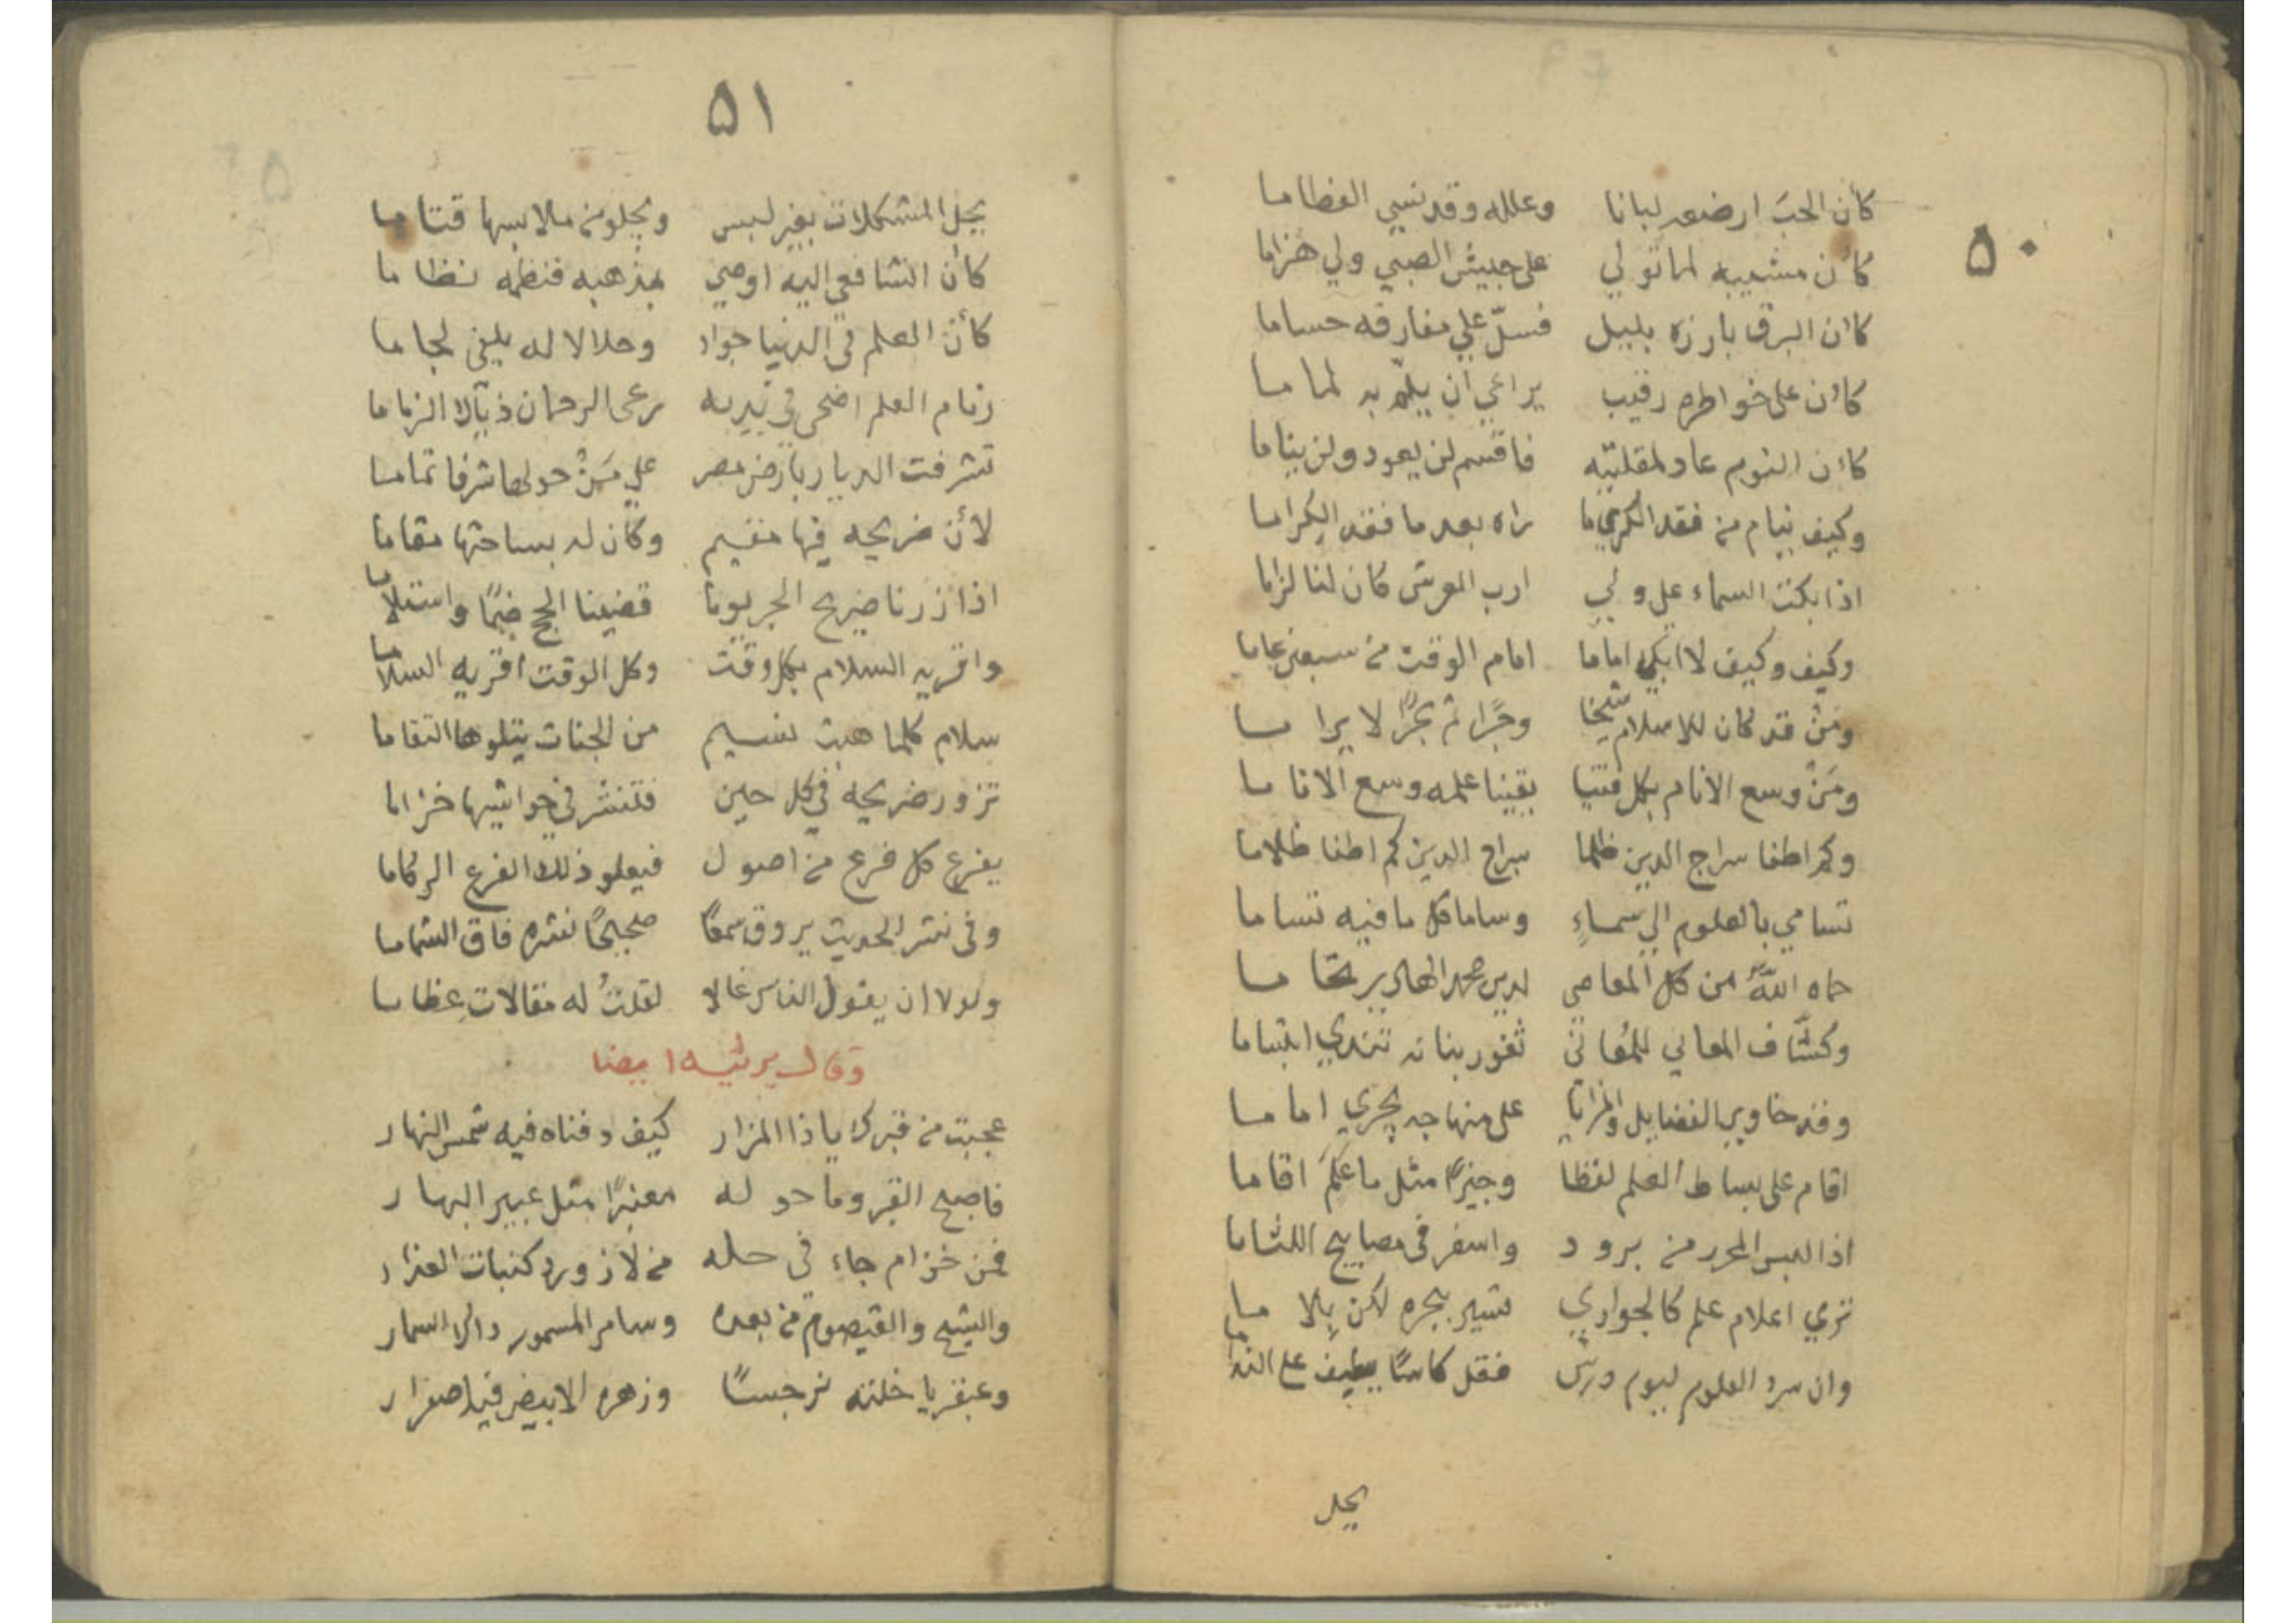 ٥٠
كأن الحبَ ارضعه لبانا وعلله وقد نسي الفطاما
كأن مشيبه لما تولي على جيش الصبي ولي هزاما
كان البرق بارزه بليل فسلّ علي مفارقه حساما
كان على خواطره رقيب يراعي ان يلمّ به لماما
كان النوم عاد لمقلتيه فاقسم لن يعود ولن يناما
وكيف ينام من فقد الكري ما راه بعد ما فقد الكراما
اذا بكت السماء علي ولي ارب العرش كان لنا لزاما
وكيف وكيف لا ابكي اماما امام الوقت من سبعين عاما
ومَنْ قد كان للاسلام شيخا وحبرًا ثم بحرًا لا يراما
ومَنْ وسع الانام بكل فتيا يقينا علمه وسع الاناما
وكم اطفا سراج الدين ظلما سراج الدين كم اطفا ظلاما
تسامي بالعلوم الي سماءٍ وساما كل ما فيه تساما
حماه اللهُ من كل المعاصي لدين محمد الهادي
وكشّاف المعاني للمُعاني ثغور بنانه تندي ابتساما
وقد حاوي الفضايل والمزايا على منهاجه يجري اماما
اقام على بساط العلم لفظا وجيزًا مثل ما علم اقاما
اذا لبس المحرر من برود واسفر في مصابيح اللثاما
تري اعلام علم كالجواري تسير ببحره لكن بلا ما
وان سرد العلوم ليوم درس فقل كاسًا يطيف على الندا ما
يحل
٥١
يحل المشكلات بغير لبس ويجلو من ملابسها قتاما
كان الشافعي اليه اوصي بمذهبه فنظمه نظاما
كأن العلم في الدنيا جواد وحلالا له يلفي لجاما
زمام العلم اضحى في يديه رعى الرحمان ذيالا الزماما
تشرفت الديار بارض مصر علي مَنْ حولها شرفا تماما
لأن ضريحه فيها مقيم وكان له بساحتها مقاما
اذا زرنا ضريح الحبر يوما قضينا الحج ضمًا واستلاما
واقريه السلام بكل وقت وكل الوقت اقريه السلاما
سلام كلما هبت نسيم من الجنات يتلوها التقاما
تزور ضريحه في كل حين فتنشر في حواشيها خزاما
يفرع كل فرع من اصول فيعلو ذلك الفرع الركاما
وفي نشر الحديث يروق سمعًا صحيحًا نشره فاق الشماما
ولولا ان يقول الناس غالا لقلتُ له مقالات عظاما
وقال يرثيه ايضا
عجبت من قبرك يا ذا المزار كيف دفناه فيه شمس النهار
فاصبح القبر وما حوله معنبرًا مثل عبير البهار
فمن خزام جاء في حله من لازورد كنبات العذار
والشيح والقيصوم من بعده وسامر المسمور
وعبقريا خلته نرجسًا وزهره الابيض فيه اصفرار